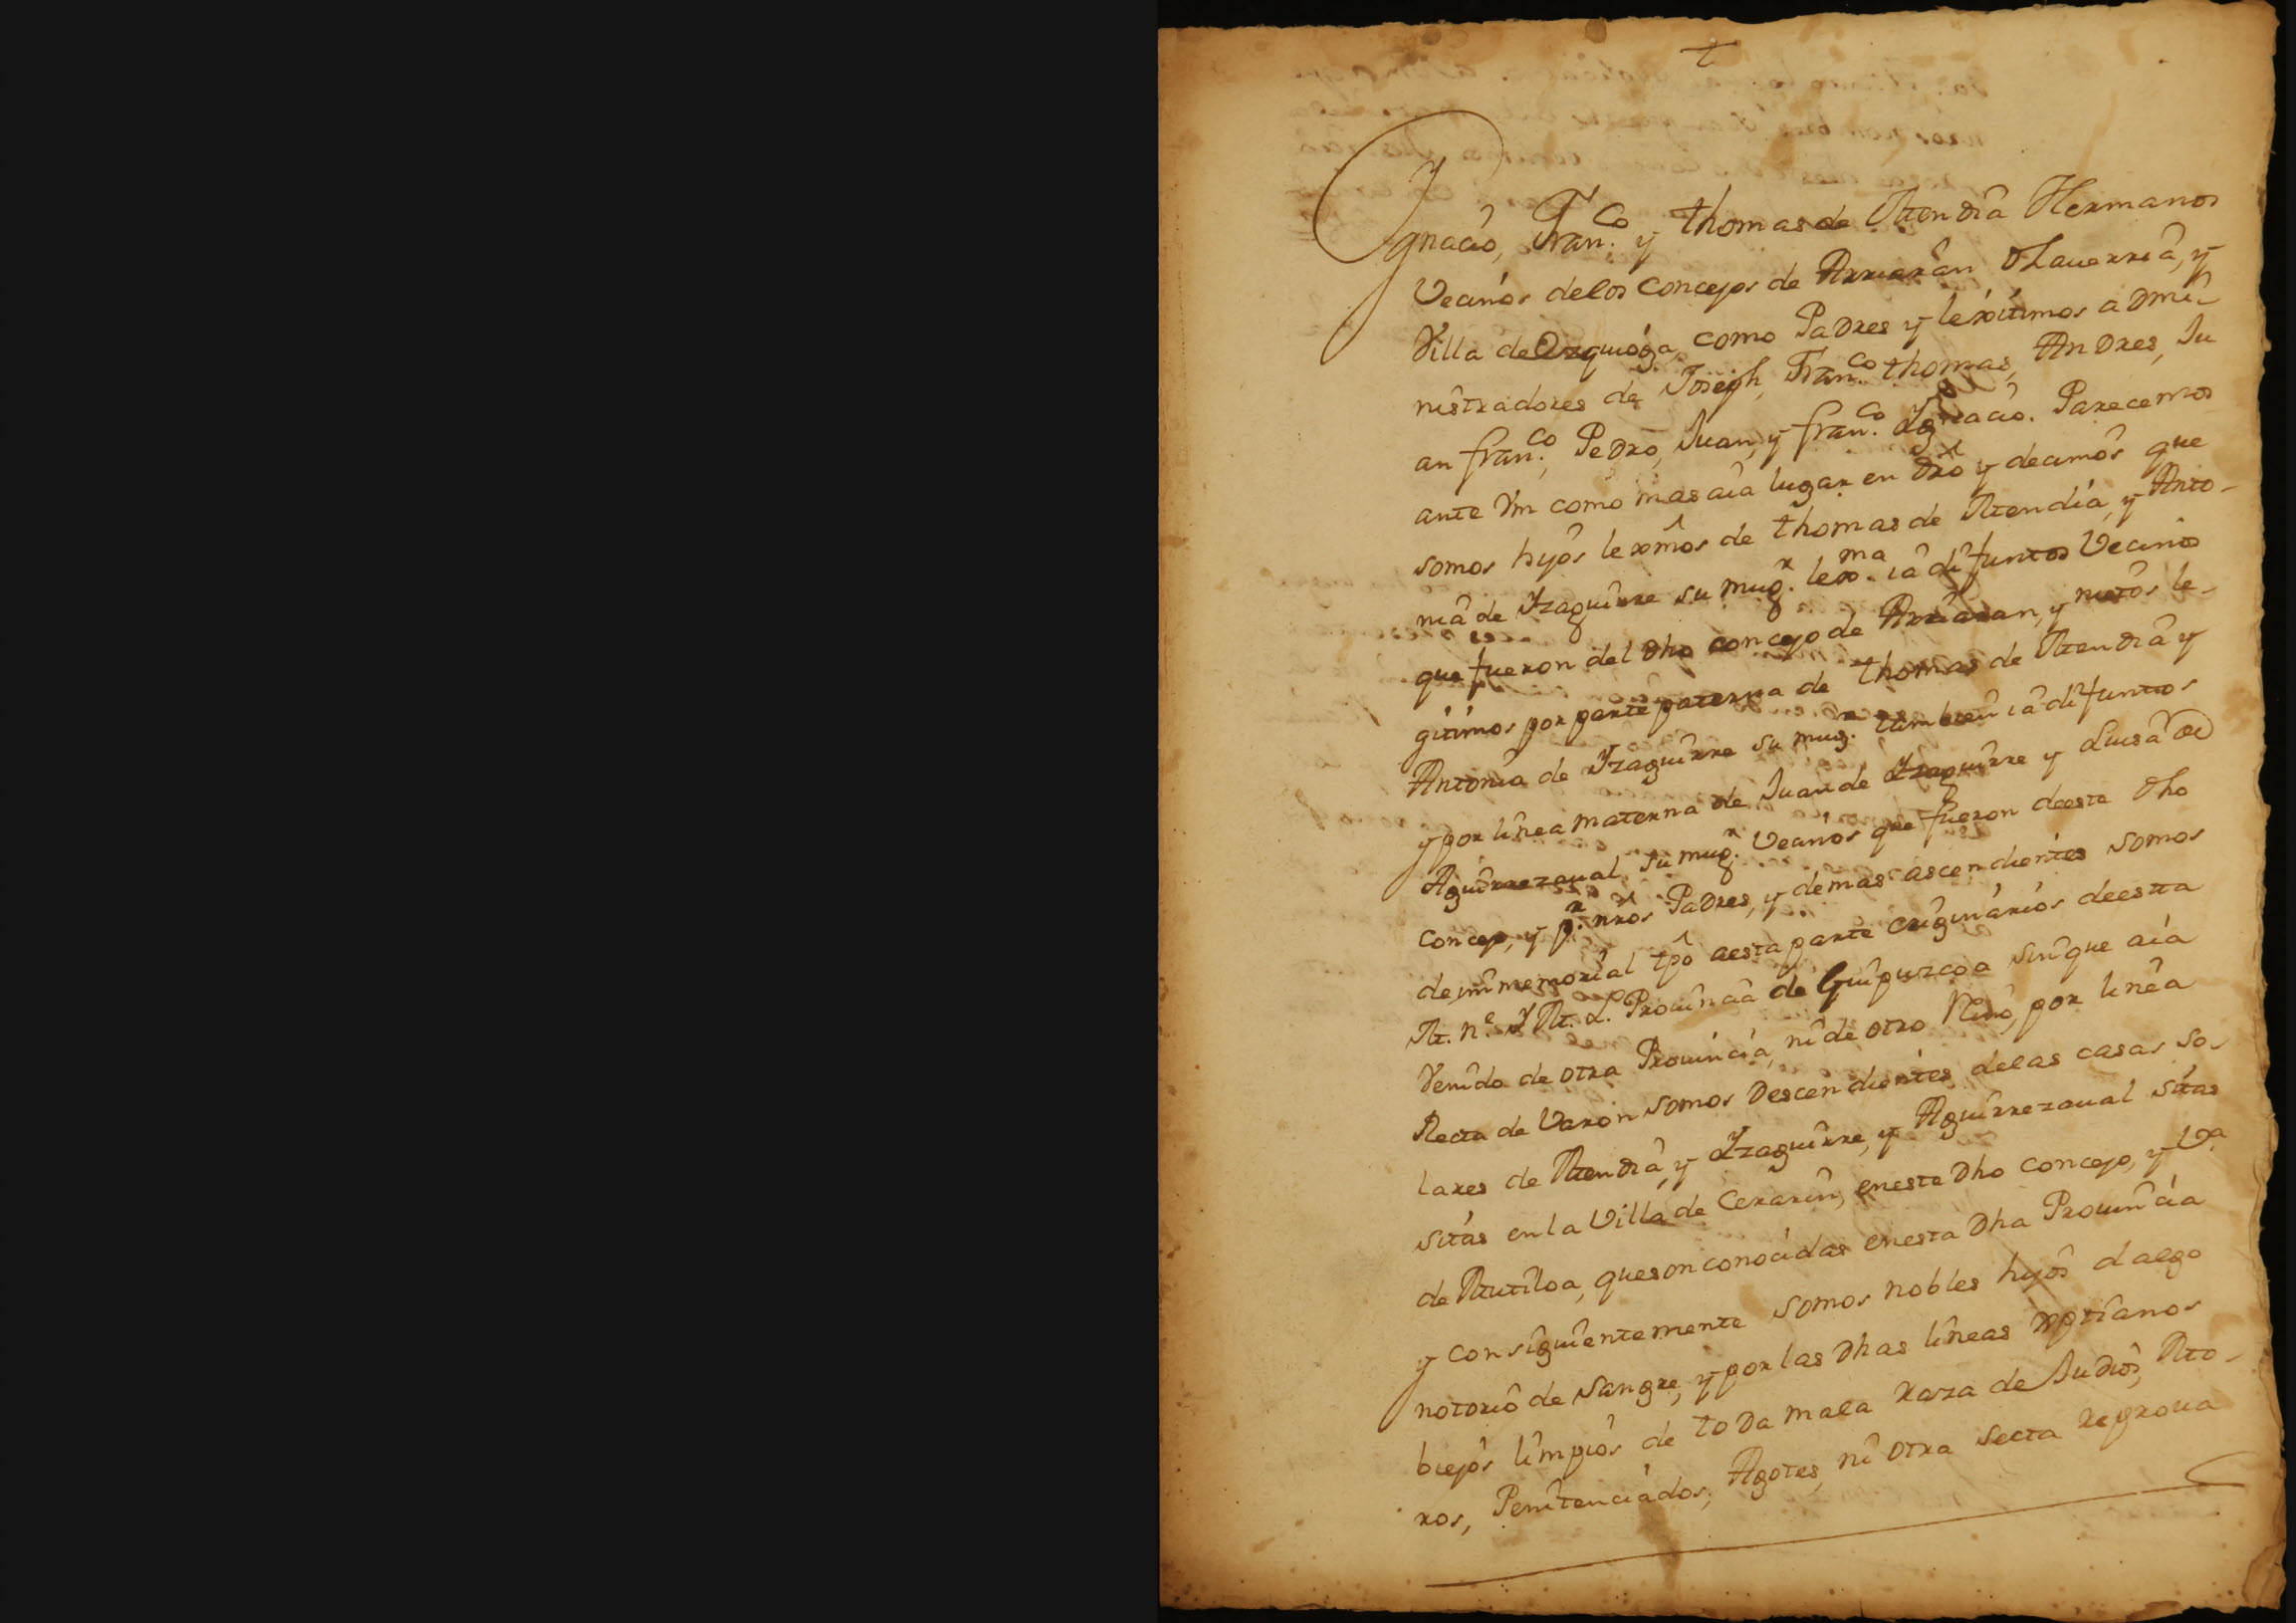 t
Ygnacio, Fran.co y thomas de Mendia Hermanos
Vecinos delos Concejos de Arriaran Olauerria, y
Villa de Ezquioga, como Padres y lexitimos admi-
nistradores de Joseph, Fran.co thomas, Andres, Ju
an fran.co, Pedro, Juan, y fran.co Ygnacio. Parecemos
ante Vm como mas aia lugar en dro y decimos que
somos hijos lexmos de thomas de Mendia, y Anto-
nia de Yzaguirre su mug.r lex.ma ia difuntos Vecinos
que fueron del dho concejo de Arriaran, y nietos le-
gitimos por parte paterna de thomas de Mendia y
Antonia de Yzaguirre su mug.r tambien ia difuntos
y por linea materna de Juan de Yzaguirre y Luisa de
Aguirrezaual su mug.r Vecinos que fueron deeste dho
concejo, y p.r nros Padres, y demas ascendientes somos
de immemorial tpo aesta parte originarios deesta
M. N.e Y M. L. Prouincia de Guipuzcoa sin que aia
Venido de otra Prouincia, ni de otro Reino, por linea
Recta de Varon somos Descendientes delas casas so-
lares de Mendia, y Yzaguirre, y Aguirrezaual sitas
sitas en la Villa de Cerain, eneste dho concejo, y V.a
de Mutiloa, queson conocidas enesta dha Prouincia
y consiguientemente somos nobles hijos dalgo
notorio de sangre, y por las dhas lineas xptianos
biejos limpios de toda mala raza de Judios, Mo-
ros, Penitenciados, Agotes, ni otra secta reproua